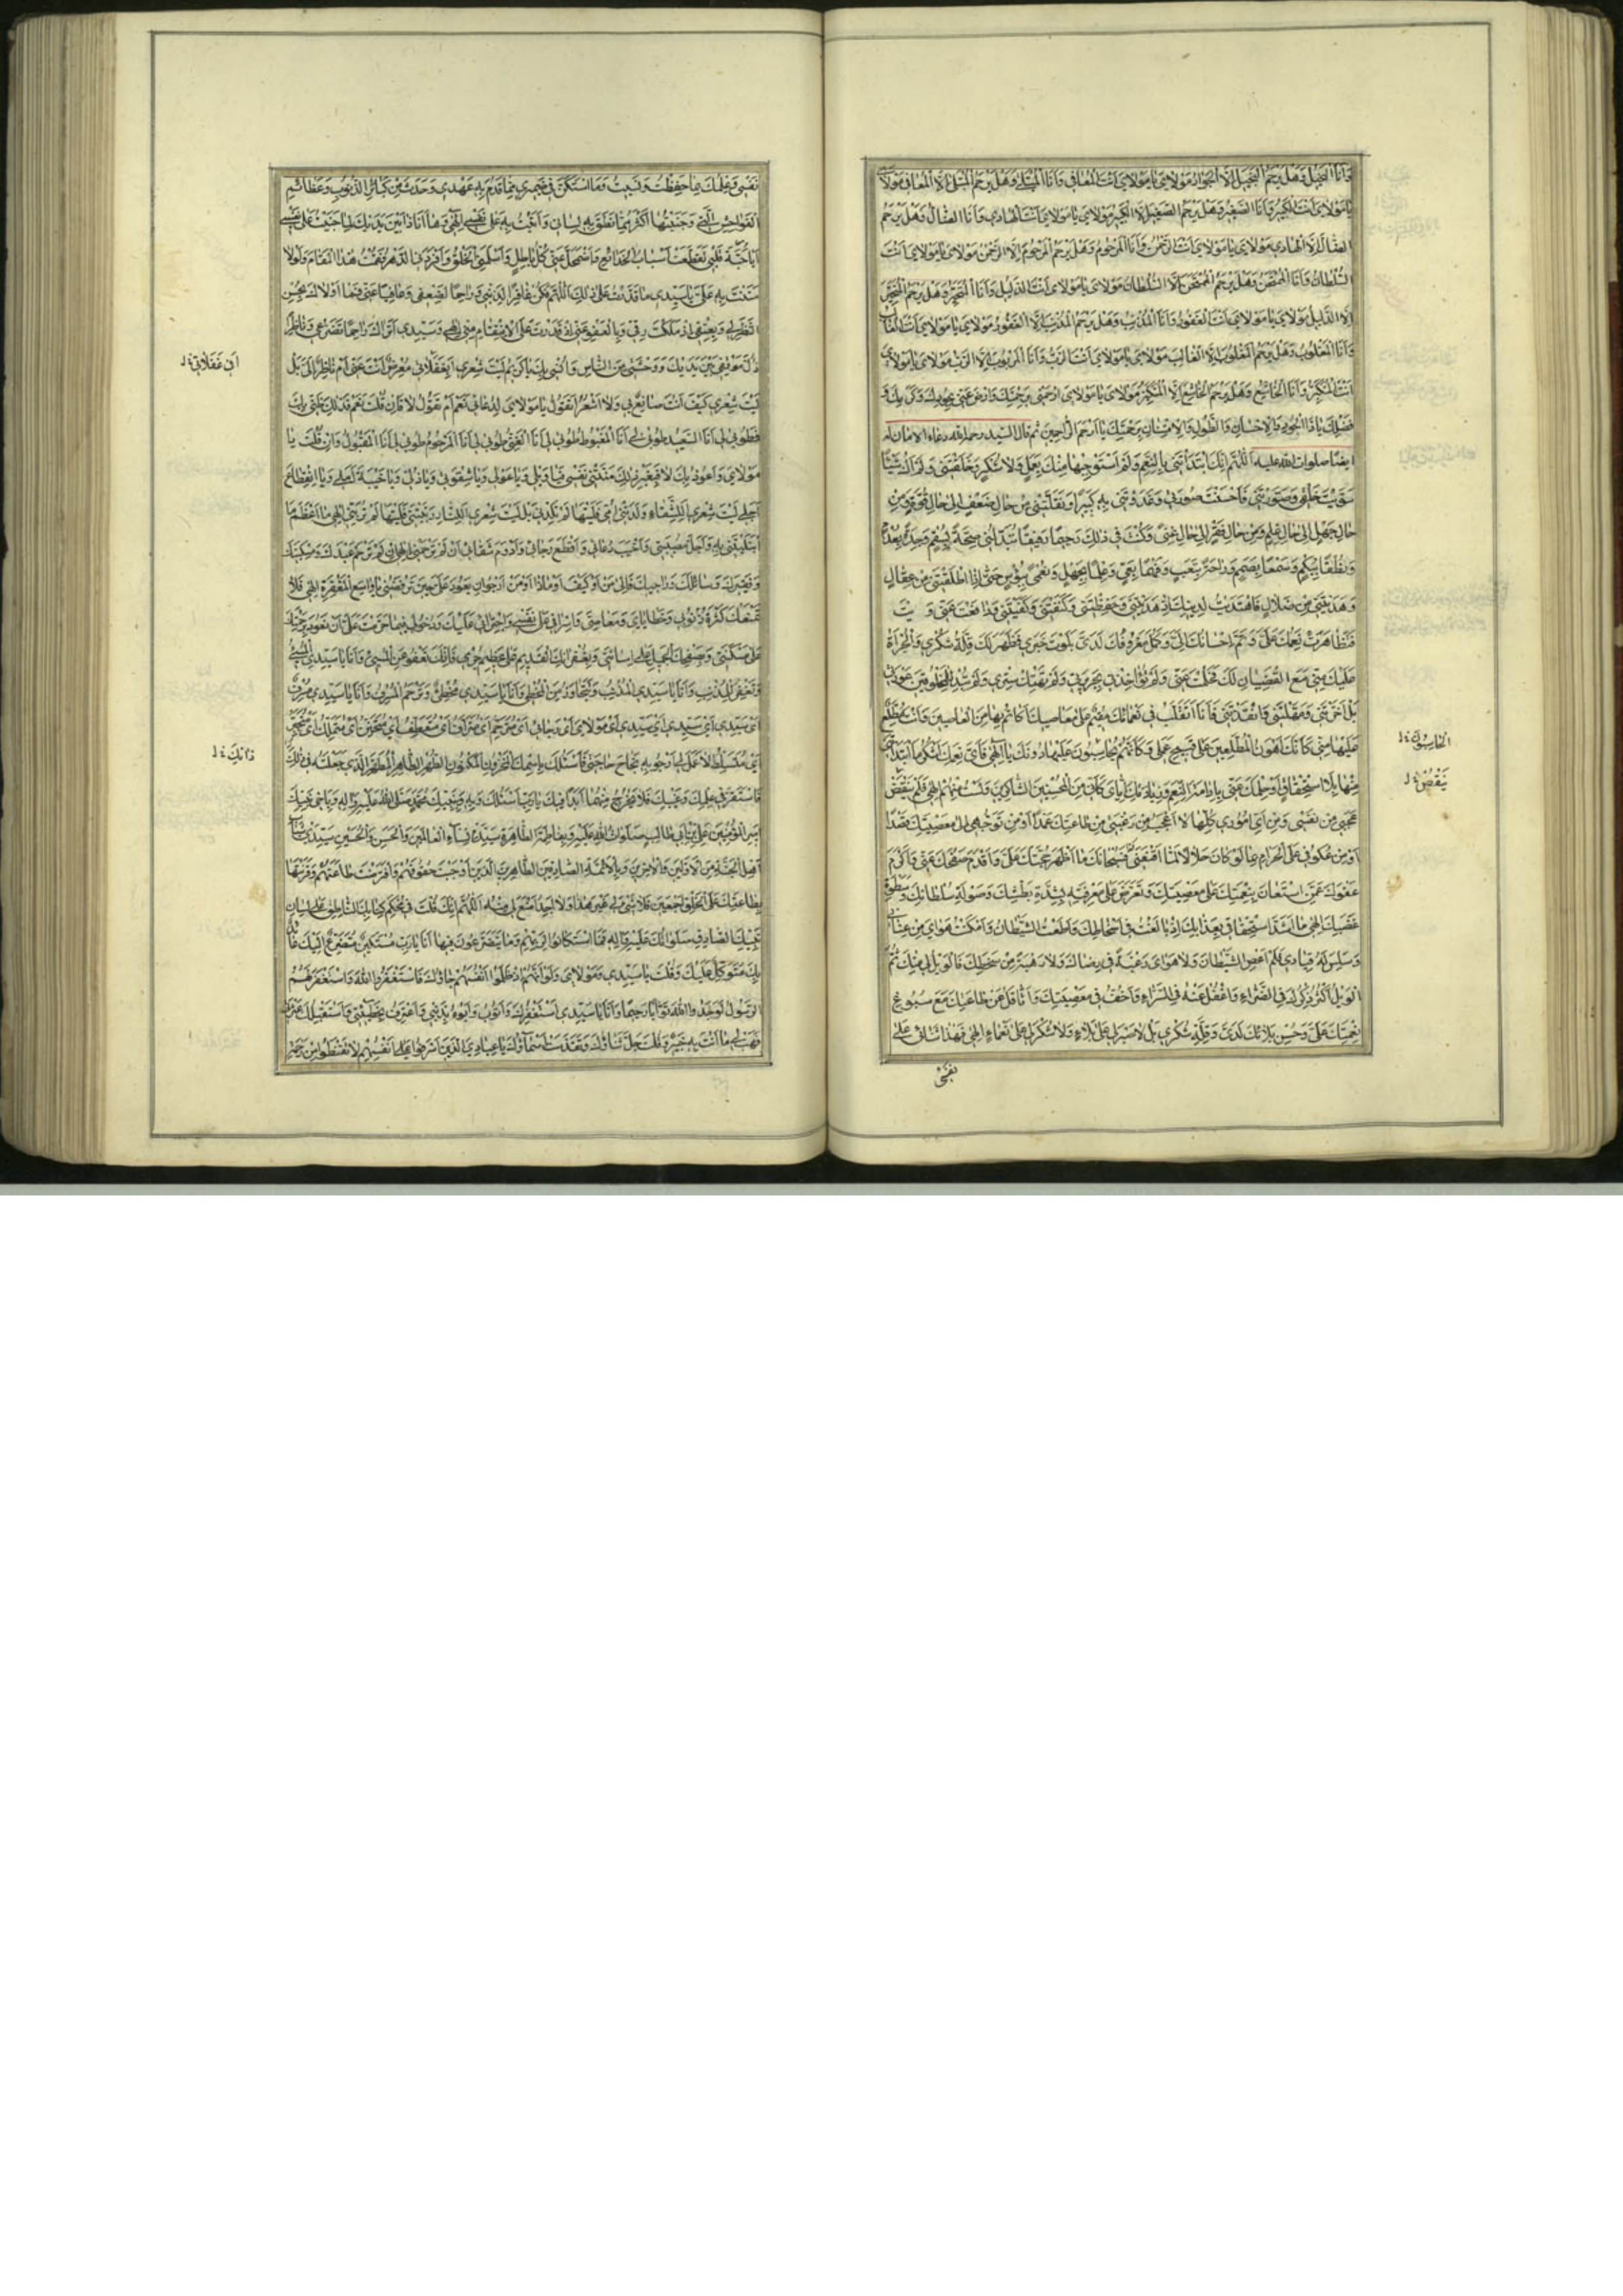 وَأَنَا الْبَخِيلُ وَهَلْ يَرْحَمُ الْبَخِيلَ إِلَّا الْجَوَادُ مَوْلَايَ يَا مَوْلَايَ أَنْتَ الْمُعَافِي وَأَنَا الْمُبْتَلَى وَهَلْ يَرْحَمُ الْمُبْتَلَى إِلَّا الْمُعَافِي مَوْلَايَ
يَا مَوْلَايَ أَنْتَ الْكَبِيرُ وَأَنَا الصَّغِيرُ وَهَلْ يَرْحَمُ الصَّغِيرَ إِلَّا الْكَبِيرُ مَوْلَايَ يَا مَوْلَايَ أَنْتَ الْهَادِي وَأَنَا الضَّالُّ وَهَلْ يَرْحَمُ
الضَّالَّ إِلَّا الْهَادِي مَوْلَايَ يَا مَوْلَايَ أَنْتَ الرَّحْمٰنُ وَأَنَا الْمَرْحُومُ وَهَلْ يَرْحَمُ الْمَرْحُومَ إِلَّا الرَّحْمٰنُ مَوْلَايَ يَا مَوْلَايَ أَنْتَ
السُّلْطَانُ وَأَنَا الْمُمْتَحَنُ وَهَلْ يَرْحَمُ الْمُمْتَحَنَ إِلَّا السُّلْطَانُ مَوْلَايَ يَا مَوْلَايَ أَنْتَ الدَّلِيلُ وَأَنَا الْمُتَحَيِّرُ وَهَلْ يَرْحَمُ الْمُتَحَيِّرَ
إِلَّا الدَّلِيلُ مَوْلَايَ يَا مَوْلَايَ أَنْتَ الْغَفُورُ وَأَنَا الْمُذْنِبُ وَهَلْ يَرْحَمُ الْمُذْنِبَ إِلَّا الْغَفُورُ مَوْلَايَ يَا مَوْلَايَ أَنْتَ الْغَالِبُ
وَأَنَا الْمَغْلُوبُ وَهَلْ يَرْحَمُ الْمَغْلُوبَ إِلَّا الْغَالِبُ مَوْلَايَ يَا مَوْلَايَ أَنْتَ الرَّبُّ وَأَنَا الْمَرْبُوبُ إِلَّا الرَّبُّ مَوْلَايَ يَا مَوْلَايَ
أَنْتَ الْمُتَكَبِّرُ وَأَنَا الْخَاشِعُ وَهَلْ يَرْحَمُ الْخَاشِعَ إِلَّا الْمُتَكَبِّرُ مَوْلَايَ يَا مَوْلَايَ ارْحَمْنِي بِرَحْمَتِكَ وَارْضَ عَنِّي بِجُودِكَ وَكَرَمِكَ وَ
فَضْلِكَ يَا ذَا الْجُودِ وَالْإِحْسَانِ وَالطَّوْلِ وَالْإِمْتِنَانِ بِرَحْمَتِكَ يَا أَرْحَمَ الرَّاحِمِينَ ثم قال السيد رحمه الله دعاء الامان له
ايضا صلوات الله عليه اَللّٰهُمَّ إِنَّكَ ابْتَدَأْتَنِي بِالنِّعَمِ وَلَمْ أَسْتَوْجِبْهَا مِنْكَ بِعَمَلٍ وَلَا شُكْرٍ وَخَلَقْتَنِي وَلَمْ أَكُ شَيْئًا
سَوَّيْتَ خَلْقِي وَصَوَّرْتَنِي فَأَحْسَنْتَ صُورَتِي وَغَذَوْتَنِي بِهِ كَبِيرًا وَنَقَلْتَنِي مِنْ حَالِ ضَعْفٍ إِلَى حَالِ قُوَّةٍ وَمِنْ
حَالِ جَهْلٍ إِلَى حَالِ عِلْمٍ وَمِنْ حَالِ فَقْرٍ إِلَى حَالِ غِنًى وَكُنْتَ فِي ذٰلِكَ رَحِيمًا رَفِيقًا تُبَدِّلُنِي صِحَّةً بِسُقْمٍ وَجِدَةً بِعُدْمٍ
وَنُطْقًا بِبُكْمٍ وَسَمْعًا بِصَمَمٍ وَرَاحَةً بِتَعَبٍ وَفَهْمًا بِعَيٍّ وَعِلْمًا بِجَهْلٍ وَنُعْمَى بِبُؤْسٍ حَتَّى إِذَا أَطْلَقْتَنِي مِنْ عِقَالٍ
وَهَدَيْتَنِي مِنْ ضَلَالٍ فَاهْتَدَيْتُ لِدِينِكَ إِذْ هَدَيْتَنِي وَحَفِظْتَنِي وَكَنَفْتَنِي وَكَفَيْتَنِي وَدَافَعْتَ عَنِّي وَ
فَتَظَاهَرَتْ نِعَمُكَ عَلَيَّ وَتَمَّ إِحْسَانُكَ إِلَيَّ وَكَمُلَ مَعْرُوفُكَ لَدَيَّ بَلَوْتَ خَبَرِي فَظَهَرَ لَكَ قِلَّةُ شُكْرِي وَالْجُرْأَةُ
عَلَيْكَ مِنِّي مَعَ الْعِصْيَانِ لَكَ فَحَلُمْتَ عَنِّي وَلَمْ تُؤَاخِذْنِي بِجَرِيرَتِي وَلَمْ تَهْتِكْ سِتْرِي وَلَمْ تُبْدِ لِلْمَخْلُوقِينَ عَوْرَتِي
بَلْ أَخَّرْتَنِي وَمَهَّلْتَنِي وَأَنْقَذْتَنِي فَأَنَا أَتَقَلَّبُ فِي نَعْمَائِكَ مُقِيمٌ عَلَى مَعَاصِيكَ أُكَاتِمُ بِهَا مِنَ الْعَاصِينَ وَأَنْتَ مُطَّلِعٌ
عَلَيْهَا مِنِّي كَأَنَّكَ أَهْوَنُ الْمُطَّلِعِينَ عَلَى قَبِيحِ عَمَلِي وَكَأَنَّهُمْ يُحَاسِبُونَ عَلَيْهَا دُونَكَ يَا إِلٰهِي فَأَيَّ نِعَمِكَ أَشْكُرُ مَا ابْتَدَأْتَنِي
مِنْهَا بِلَا اسْتِحْقَاقٍ أَوْ حِلْمِكَ عَنِّي بِإِدَامَةِ النِّعَمِ وَزِيَادَتِكَ إِيَّايَ كَأَنِّي مِنَ الْمُحْسِنِينَ الشَّاكِرِينَ وَلَسْتُ مِنْهُمْ إِلٰهِي فَلَمْ يَنْقَضِ
عَجَبِي مِنْ نَفْسِي وَمِنْ أَيِّ أُمُورِي كُلِّهَا لَا أَعْجَبُ مِنْ رَغْبَتِي مِنْ طَاعَتِكَ عَمْدًا أَوْ مِنْ تَوَجُّهِي إِلَى مَعْصِيَتِكَ قَصْدًا
أَوْ مِنْ عُكُوفِي عَلَى الْحَرَامِ بِمَا لَوْ كَانَ حَلَالًا لَمَا أَقْنَعَنِي فَسُبْحَانَكَ مَا أَظْهَرَ حُجَّتَكَ عَلَيَّ وَأَقْدَمَ صَفْحَكَ عَنِّي وَأَكْرَمَ
عَفْوَكَ عَمَّنِ اسْتَعَانَ بِنِعْمَتِكَ عَلَى مَعْصِيَتِكَ وَتَعَرَّضَ عَلَى مَعْرِفَتِهِ بِشِدَّةِ بَطْشِكَ وَصَوْلَةِ سُلْطَانِكَ وَسَطْوَةِ
غَضَبِكَ إِلٰهِي مَا أَشَدَّ اسْتِحْقَاقِي بِعَذَابِكَ إِذْ بَالَغْتُ فِي إِسْخَاطِكَ وَأَطَعْتُ الشَّيْطَانَ وَأَمْكَنْتُ هَوَايَ مِنْ عِنَانِي
وَسَلِسَ لَهُ قِيَادِي فَلَمْ أَعْصِ الشَّيْطَانَ وَلَا هَوَايَ رَغْبَةً فِي رِضَاكَ وَلَا رَهْبَةً مِنْ سَخَطِكَ فَالْوَيْلُ لِي مِنْكَ ثُمَّ
الْوَيْلُ أُكْثِرُ ذِكْرَكَ فِي الضَّرَّاءِ وَأَغْفُلُ عَنْهُ فِي السَّرَّاءِ وَأَخِفُّ فِي مَعْصِيَتِكَ وَأَثَّاقَلُ عَنْ طَاعَتِكَ مَعَ سُبُوغِ
نِعْمَتِكَ عَلَيَّ وَحُسْنِ بَلَائِكَ لَدَيَّ وَقِلَّةِ شُكْرِي بَلْ لَا صَبْرَ لِي عَلَى بَلَاءٍ وَلَا شُكْرَ لِي عَلَى نَعْمَاءَ إِلٰهِي فَهٰذَا ثَنَائِي عَلَى
نفسي
يَنْقُصْ
نَفْسِي وَعِلْمُكَ بِمَا حَفِظْتَ وَنَسِيتُ وَمَا اسْتَكَنَّ فِي ضَمِيرِي مِمَّا قَدُمَ بِهِ عَهْدِي وَحَدَثَ مِنْ كَبَائِرِ الذُّنُوبِ وَعَظَائِمِ
الْفَوَاحِشِ الَّتِي وَجَنَيْتُهَا أَكْثَرُ مِمَّا نَطَقَ بِهِ لِسَانِي وَأَتَيْتُ بِهِ عَلَى نَفْسِي إِلٰهِي وَهَا أَنَا ذَا بَيْنَ يَدَيْكَ لِمَا جَنَيْتُ عَلَى نَفْسِي
كُلُّ بَاطِلٍ وَأَسْلَمَنِي الْخَلْقُ وَأَفْرَدَنِي الدَّهْرُ فَقُمْتُ هٰذَا الْمَقَامَ وَلَوْلَا
مَا مَنَنْتَ بِهِ عَلَيَّ يَا سَيِّدِي مَا قَدَرْتُ عَلَى ذٰلِكَ اَللّٰهُمَّ فَكُنْ غَافِرًا لِذَنْبِي وَرَاحِمًا لِضَعْفِي وَعَافِيًا عَنِّي فَمَا أَوْلَاكَ بِحُسْنِ
النَّظَرِ لِي وَبِعِتْقِي إِذْ مَلَكْتَ رِقِّي وَبِالْعَفْوِ عَنِّي إِذْ قَدَرْتَ عَلَى الْإِنْتِقَامِ مِنِّي إِلٰهِي وَسَيِّدِي أَتُرَاكَ رَاحِمًا تَضَرُّعِي وَنَاظِرًا
ذُلَّ مَوْقِفِي بَيْنَ يَدَيْكَ وَوَحْشَتِي مِنَ النَّاسِ وَأُنْسِي بِكَ يَا كَرِيمُ لَيْتَ شِعْرِي أَبِغَفَلَاتِي مُعْرِضٌ أَنْتَ عَنِّي أَمْ نَاظِرٌ إِلَيَّ بَلْ
لَيْتَ شِعْرِي كَيْفَ أَنْتَ صَانِعٌ بِي وَلَا أَشْعُرُ أَتَقُولُ يَا مَوْلَايَ لِدُعَائِي نَعَمْ أَمْ تَقُولُ لَا فَإِنْ قُلْتَ نَعَمْ فَذٰلِكَ ظَنِّي بِكَ
فَطُوبَى لِي أَنَا السَّعِيدُ طُوبَى لِي أَنَا الْمَغْبُوطُ طُوبَى لِي أَنَا الْغَنِيُّ طُوبَى لِي أَنَا الْمَرْحُومُ طُوبَى لِي أَنَا الْمَقْبُولُ وَإِنْ قُلْتَ يَا
مَوْلَايَ وَأَعُوذُ بِكَ لَا فَبِغَيْرِ ذٰلِكَ مَنَّتْنِي نَفْسِي فَيَا وَيْلِي وَيَا عَوْلِي وَيَا شِقْوَتِي وَيَا ذُلِّي وَيَا خَيْبَةَ أَمَلِي وَيَا انْقِطَاعَ
أَجَلِي لَيْتَ شِعْرِي أَلِلشَّقَاءِ وَلَدَتْنِي أُمِّي فَلَيْتَهَا لَمْ تَلِدْنِي بَلْ لَيْتَ شِعْرِي أَلِلنَّارِ رَبَّتْنِي فَلَيْتَهَا لَمْ تُرَبِّنِي إِلٰهِي مَا أَعْظَمَ مَا
ابْتَلَيْتَنِي بِهِ وَأَجَلَّ مُصِيبَتِي وَأَخْيَبَ دُعَائِي وَأَقْطَعَ رَجَائِي وَأَدْوَمَ شَقَائِي إِنْ لَمْ تَرْحَمْنِي إِلٰهِي إِنْ لَمْ تَرْحَمْ عَبْدَكَ وَمِسْكِينَكَ
وَفَقِيرَكَ وَسَائِلَكَ وَرَاجِيكَ فَإِلَى مَنْ أَوْ كَيْفَ أَوْ مَاذَا أَوْ مَنْ أَرْجُو أَنْ يَعُودَ عَلَيَّ حِينَ تَرْفُضُنِي يَا وَاسِعَ الْمَغْفِرَةِ إِلٰهِي فَلَا
تَمْنَعْكَ كَثْرَةُ ذُنُوبِي وَخَطَايَايَ وَمَعَاصِيَّ وَإِسْرَافِي عَلَى نَفْسِي وَاجْتِرَائِي عَلَيْكَ وَدُخُولِي فِيمَا حَرَّمْتَ عَلَيَّ أَنْ تَعُودَ بِرَحْمَتِكَ
عَلَى مَسْكَنَتِي وَبِصَفْحِكَ الْجَمِيلِ عَلَى إِسَاءَتِي وَبِغُفْرَانِكَ الْقَدِيمِ عَلَى عَظِيمِ جُرْمِي فَإِنَّكَ تَعْفُو عَنِ الْمُسِيءِ وَأَنَا يَا سَيِّدِي الْمُسِيءُ
وَتَغْفِرُ لِلْمُذْنِبِ وَأَنَا يَا سَيِّدِي الْمُذْنِبُ وَتَتَجَاوَزُ عَنِ الْمُخْطِئِ وَأَنَا يَا سَيِّدِي مُخْطِئٌ وَتَرْحَمُ الْمُسْرِفَ وَأَنَا يَا سَيِّدِي مُسْرِفٌ
أَيْ سَيِّدِي أَيْ سَيِّدِي أَيْ سَيِّدِي أَيْ مَوْلَايَ أَيْ رَجَائِي أَيْ مُتَرَحِّمُ أَيْ مُتَرَئِّفُ أَيْ مُتَعَطِّفُ أَيْ مُتَحَنِّنُ أَيْ مُتَمَلِّكُ
لَا عَمَلَ لِي أَرْجُو بِهِ نَجَاحَ حَاجَتِي فَأَسْئَلُكَ بِاسْمِكَ الْمَخْزُونِ الْمَكْنُونِ الطُّهْرِ الطَّاهِرِ الْمُطَهَّرِ الَّذِي جَعَلْتَهُ فِي ذٰلِكَ
فَاسْتَقَرَّ فِي عِلْمِكَ وَغَيْبِكَ فَلَا يَخْرُجُ مِنْهُمَا أَبَدًا فَبِكَ يَا رَبِّ أَسْئَلُكَ وَبِهِ وَبِنَبِيِّكَ مُحَمَّدٍ صَلَّى اللّٰهُ عَلَيْهِ وَآلِهِ وَبِأَخِي نَبِيِّكَ
أَمِيرِ الْمُؤْمِنِينَ عَلِيِّ بْنِ أَبِي طَالِبٍ صَلَوَاتُ اللّٰهِ عَلَيْهِ وَبِفَاطِمَةَ الطَّاهِرَةِ سَيِّدَةِ نِسَاءِ الْعَالَمِينَ وَالْحَسَنِ وَالْحُسَيْنِ سَيِّدَيْ شَبَابِ
أَهْلِ الْجَنَّةِ مِنَ الْأَوَّلِينَ وَالْآخِرِينَ وَبِالْأَئِمَّةِ الصَّادِقِينَ الطَّاهِرِينَ الَّذِينَ أَوْجَبْتَ حُقُوقَهُمْ وَافْتَرَضْتَ طَاعَتَهُمْ وَقَرَنْتَهَا
بِطَاعَتِكَ عَلَى الْخَلْقِ أَجْمَعِينَ فَلَا شَيْءَ لِي غَيْرُ هٰذَا وَلَا أَجِدُ أَمْنَعَ لِي مِنْهُ اَللّٰهُمَّ إِنَّكَ قُلْتَ فِي مُحْكَمِ كِتَابِكَ النَّاطِقِ عَلَى لِسَانِ
نَبِيِّكَ الصَّادِقِ صَلَوَاتُكَ عَلَيْهِ وَآلِهِ فَمَا اسْتَكَانُوا لِرَبِّهِمْ وَمَا يَتَضَرَّعُونَ فَهَا أَنَا يَا رَبِّ مُسْتَكِينٌ مُتَضَرِّعٌ إِلَيْكَ
بِكَ مُتَوَكِّلٌ عَلَيْكَ وَقُلْتَ يَا سَيِّدِي وَمَوْلَايَ وَلَوْ أَنَّهُمْ إِذْ ظَلَمُوا أَنْفُسَهُمْ جَاؤُكَ فَاسْتَغْفَرُوا اللّٰهَ وَاسْتَغْفَرَ لَهُمُ
الرَّسُولُ لَوَجَدُوا اللّٰهَ تَوَّابًا رَحِيمًا وَأَنَا يَا سَيِّدِي أَسْتَغْفِرُكَ وَأَتُوبُ وَأَبُوءُ بِذَنْبِي وَأَعْتَرِفُ بِخَطِيئَتِي وَأَسْتَقِيلُكَ عَثْرَتِي
فَهَبْ لِي مَا أَنْتَ بِهِ خَبِيرٌ وَقُلْتَ جَلَّ ثَنَاؤُكَ وَتَقَدَّسَتْ أَسْمَاؤُكَ يَا عِبَادِيَ الَّذِينَ أَسْرَفُوا عَلَى أَنْفُسِهِمْ لَا تَقْنَطُوا مِنْ رَحْمَةِ